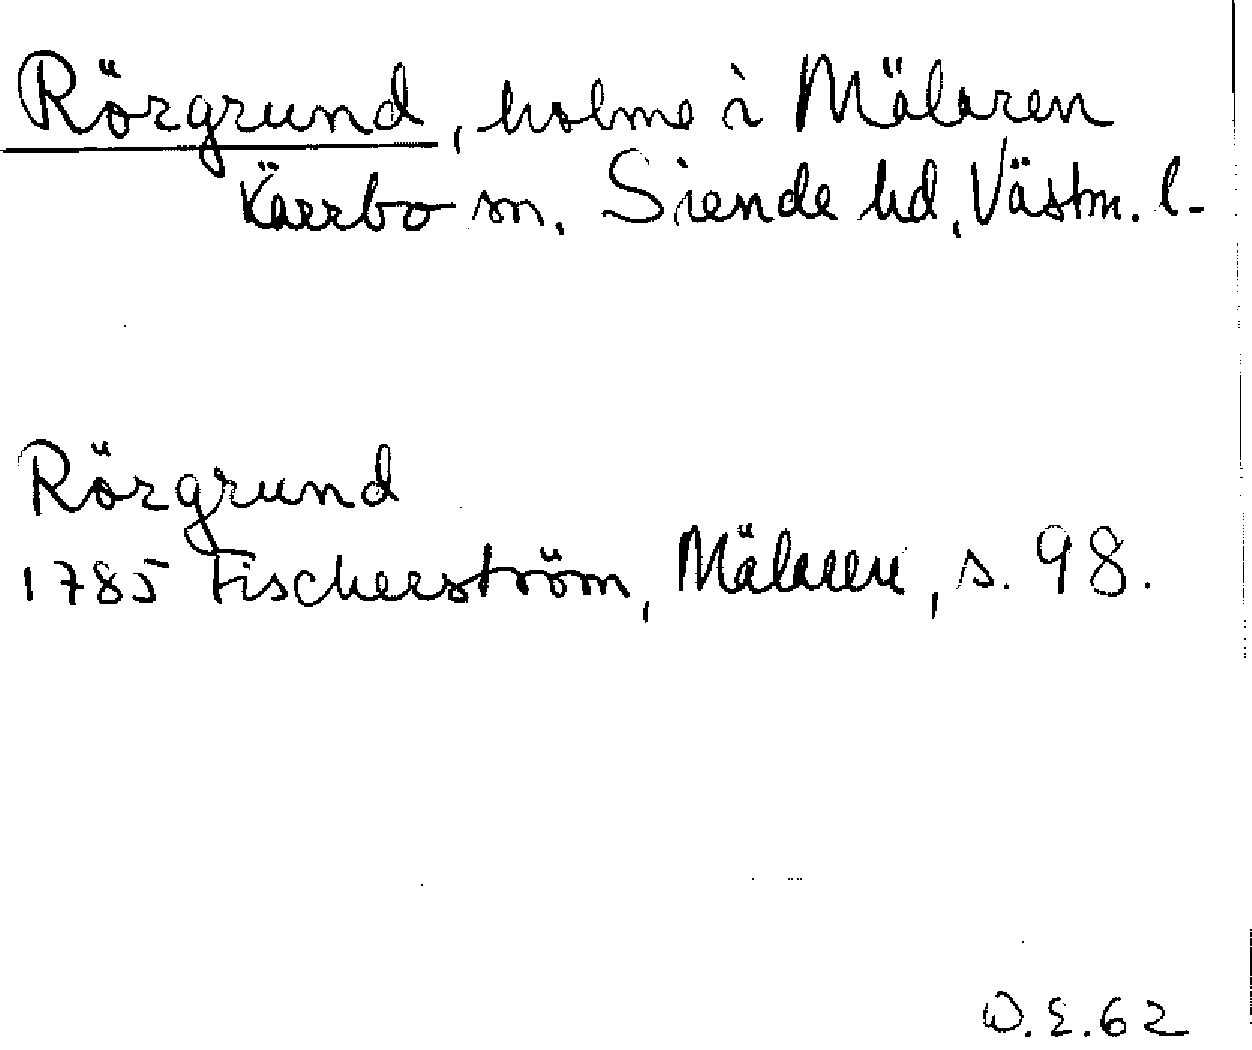 Rörgrund, holme i Mälaren
Kärrbo sn, Siende hd, Västm. l.
Rörgrund
1785 Fischerström, Mälaren, s. 98.
W.E.62